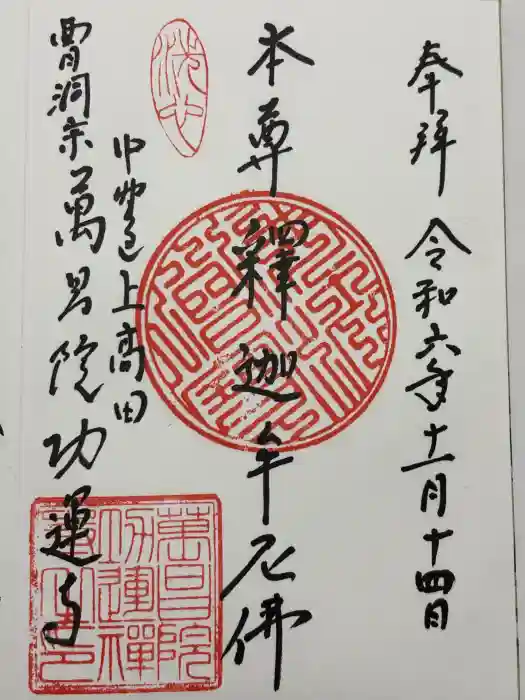 奉拝 令和六年十一月十四日
本尊 釋迦牟尼佛
中野区上高田
曹洞宗 萬昌院功運寺
萬昌院
功運禅